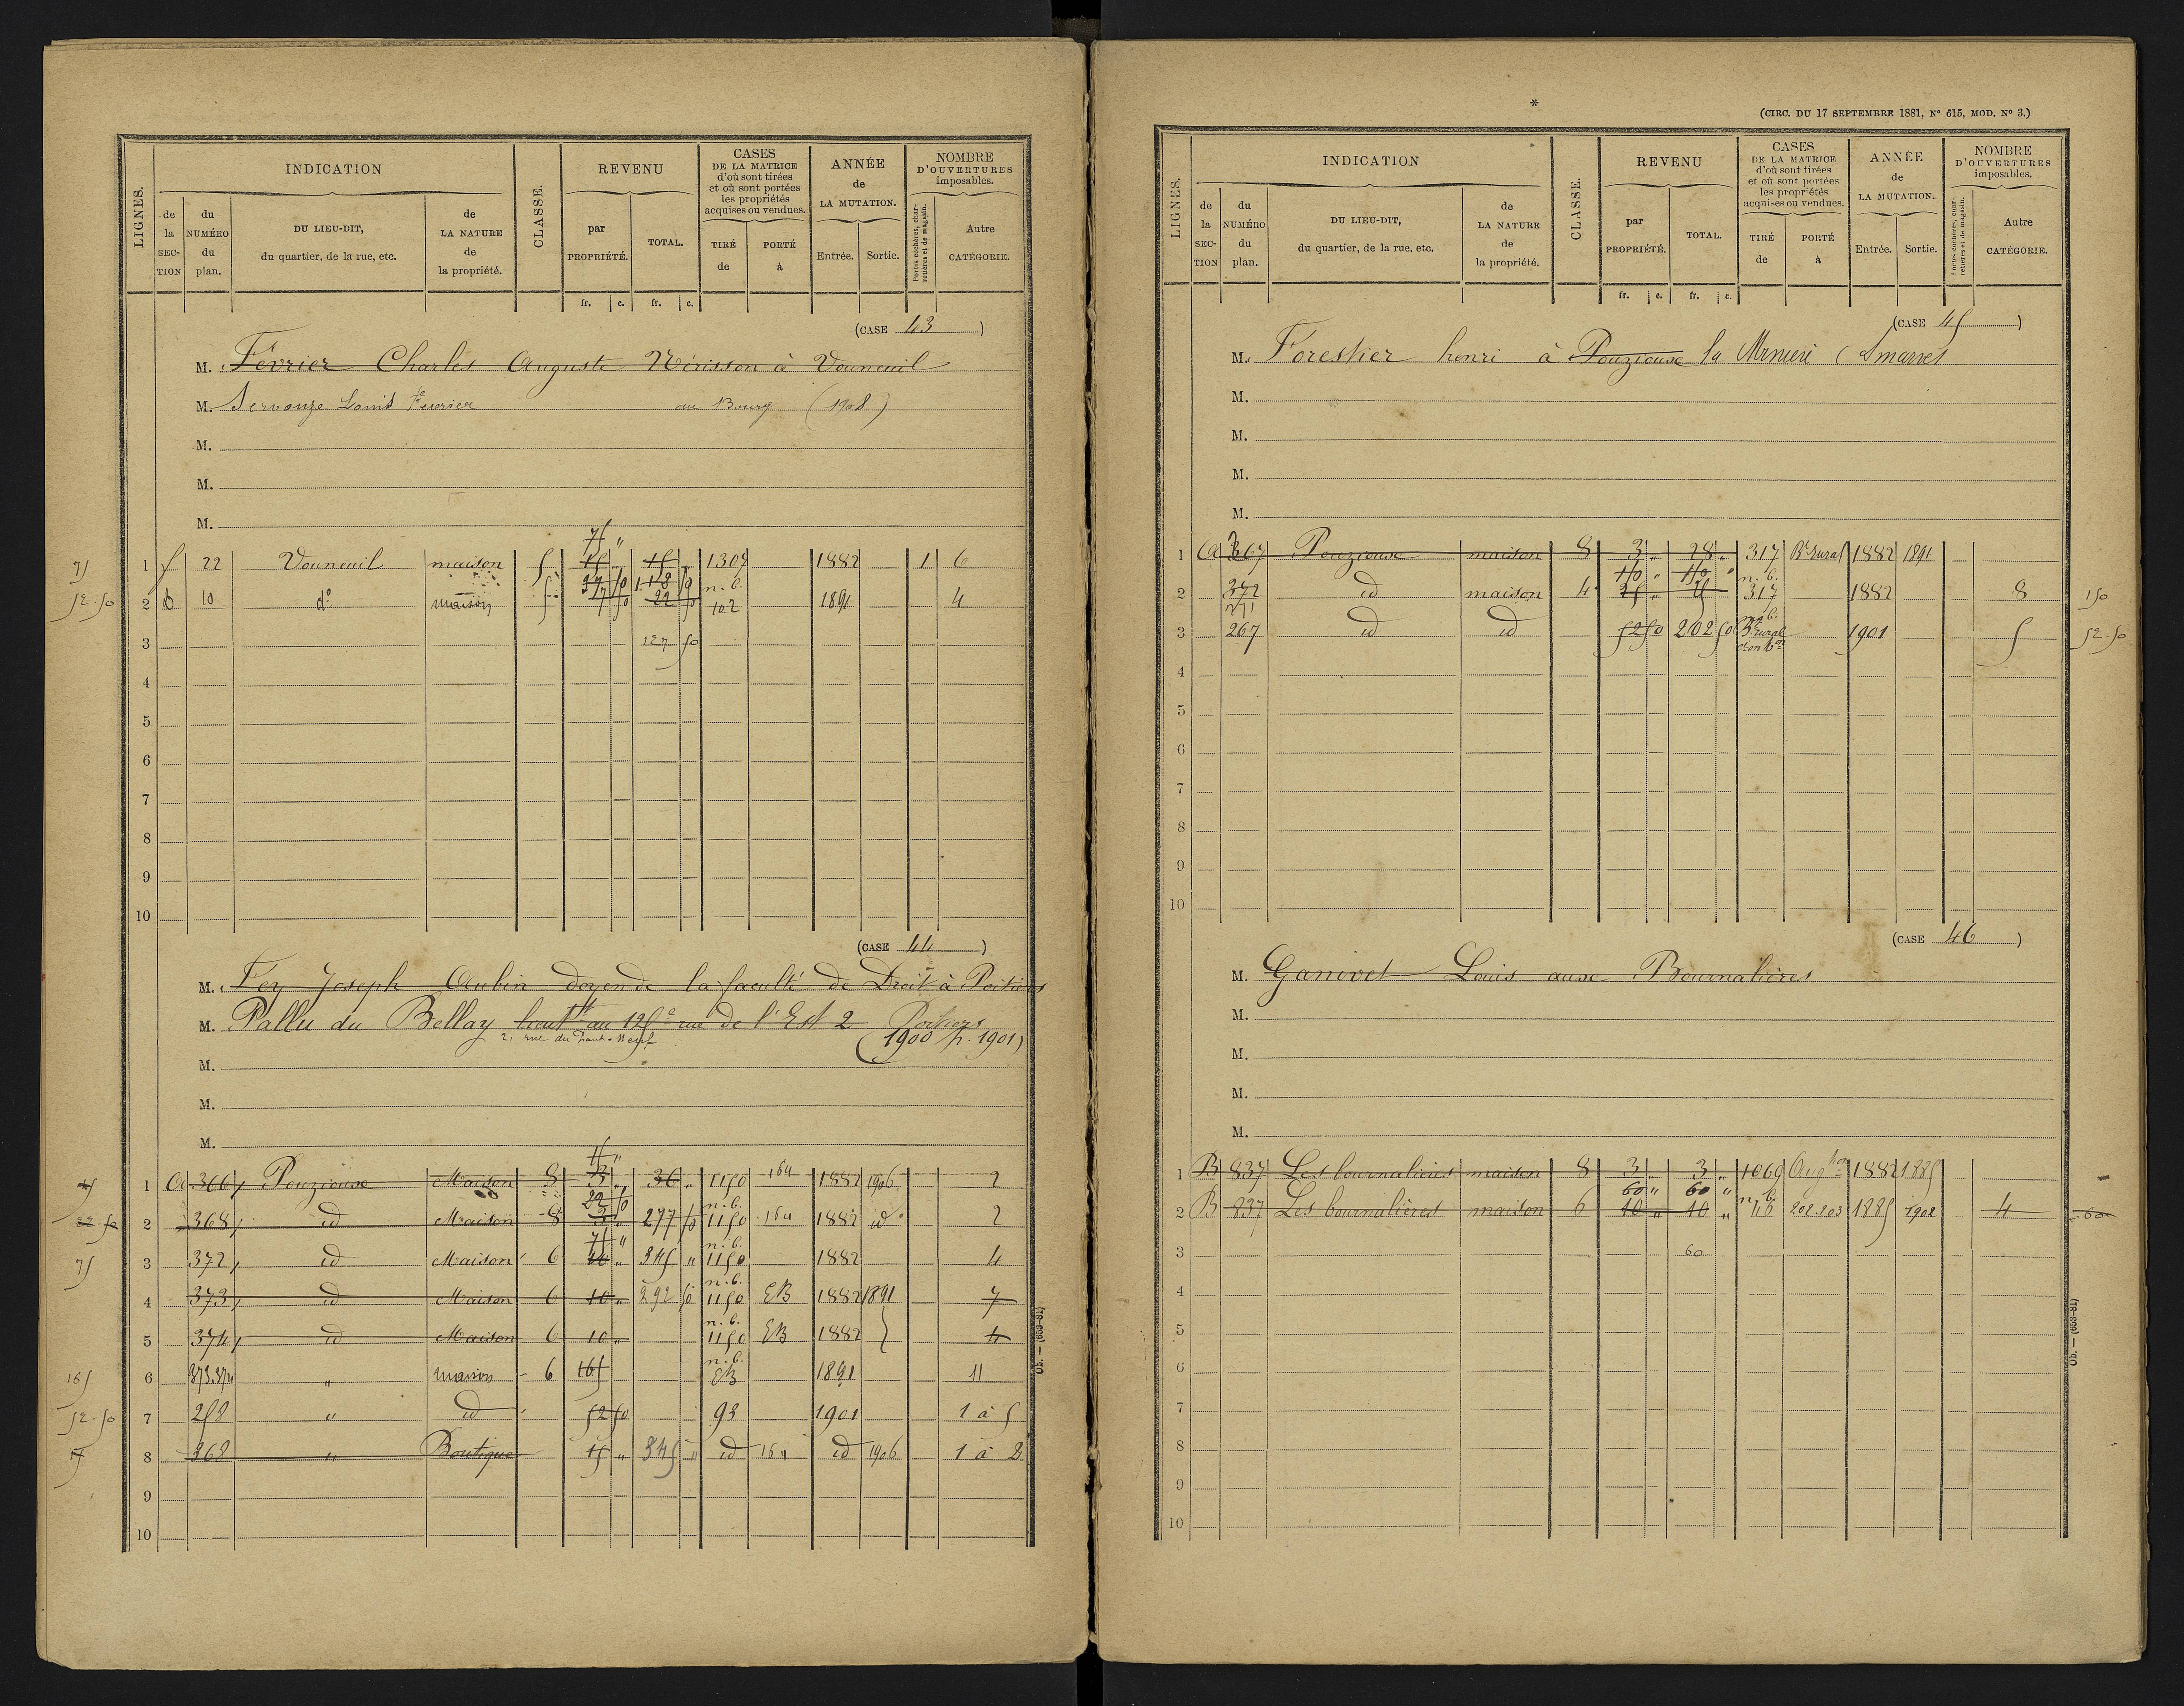 LIGNES.
INDICATION
de la SECTION
du NUMÉRO du plan.
DU LIEU-DIT, du quartier, de la rue, etc.
de LA NATURE de la propriété.
CLASSE.
REVENU
par PROPRIÉTÉ.
TOTAL.
fr. c. fr. c.
CASES DE LA MATRICE d'où sont tirées et où sont portées les propriétés acquises ou vendues.
TIRÉ de
PORTÉ à
ANNÉE de LA MUTATION.
Entrée. Sortie.
NOMBRE D'OUVERTURES imposables.
Portes cochères, charretières et de magasin.
Autre CATÉGORIE.
(CASE 43)
M. Février Charles Auguste Nérisson à Vouneuil
M. Servouze Louis Fevrier au Bourg (1908)
M.
M.
M.
75 "
75 1 22 Vouneuil maison 5 15 15 1307 1882 1 6
37 50 118 50 n.b.
52.50 2 D 10 d° maison 5 7 50 22 50 102 1891 4
3 127 50
4
5
6
7
8
9
10
(CASE 44)
M. Fey Joseph Aubin doyen de la faculté de Droit à Poitiers
M. Pallu du Bellay lieut au 125e rue de l'Est 2 Poitiers
2, rue du (1900 p. 1901)
M.
M.
M.
15 "
15 1 A 366 Pouzioux Maison 8 3 " 36 " 1150 164 1882 1906 2
22 50 n.b.
22 50 2 368 id Maison 8 3 " 277 50 1150 164 1882 id 2
75 " n.b.
75 3 372 id Maison 6 10 " 345 " 1150 1882 4
n.b.
4 373 id Maison 6 10 " 292 50 1150 EB 1882 1891 7
n.b.
5 374 id Maison 6 10 " 1150 EB 1882 4
n.b.
165 6 373.374 " maison 6 165 EB 1891 11
52.50 7 258 " id 52 50 93 1901 1 à 5
15 8 368 " Boutique 15 " 345 " id 164 id 1906 1 à 2
9
10
Ob. — (658-81)
*
(CIRC. DU 17 SEPTEMBRE 1881, N° 615, MOD. N° 3.)
LIGNES.
INDICATION
de la SECTION
du NUMÉRO du plan.
DU LIEU-DIT, du quartier, de la rue, etc.
de LA NATURE de la propriété.
CLASSE.
REVENU
par PROPRIÉTÉ.
TOTAL.
fr. c. fr. c.
CASES DE LA MATRICE d'où sont tirées et où sont portées les propriétés acquises ou vendues.
TIRÉ de
PORTÉ à
ANNÉE de LA MUTATION.
Entrée. Sortie.
NOMBRE D'OUVERTURES imposables.
Portes cochères, charretières et de magasin.
Autre CATÉGORIE.
(CASE 45)
M. Forestier henri à Pouzioux la (Smarves
M.
M.
M.
M.
1 A 267 Pouzioux maison 8 3 " 28 " 317 Bt rural 1882 1891
150 " 150 " n.b.
2 372 id maison 4 25 " 317 1882 8 150
3 267 id id 52 50 202 50 Bt rural 1901 5 52.50
4
5
6
7
8
9
10
(CASE 46)
M. Ganivet Louis aux Bournalières
M.
M.
M.
M.
1 B 837 Les bournalières maison 8 3 " 3 " 1069 Augon 1882 1885
60 " 60 " n.b.
2 B 837 Les bournalières maison 6 10 " 10 " 202.203 1885 1902 4 60
3 60
4
5
6
7
8
9
10
Ob. — (658-81)